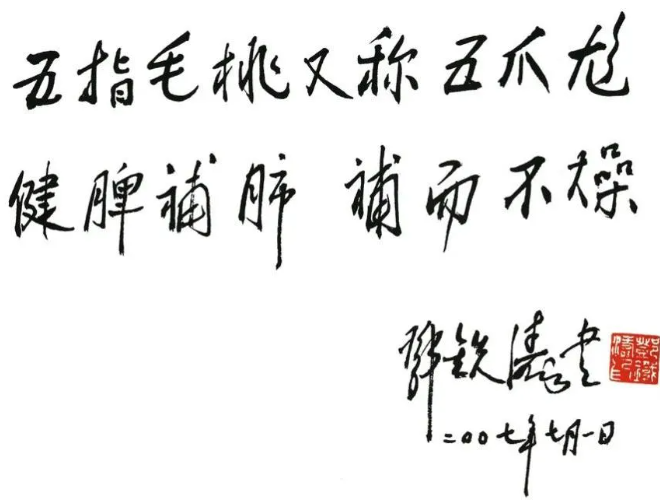 五指毛桃又称五爪尨
健脾補肺 補而不燥
鄧鉄涛书
二〇〇七年七月一日